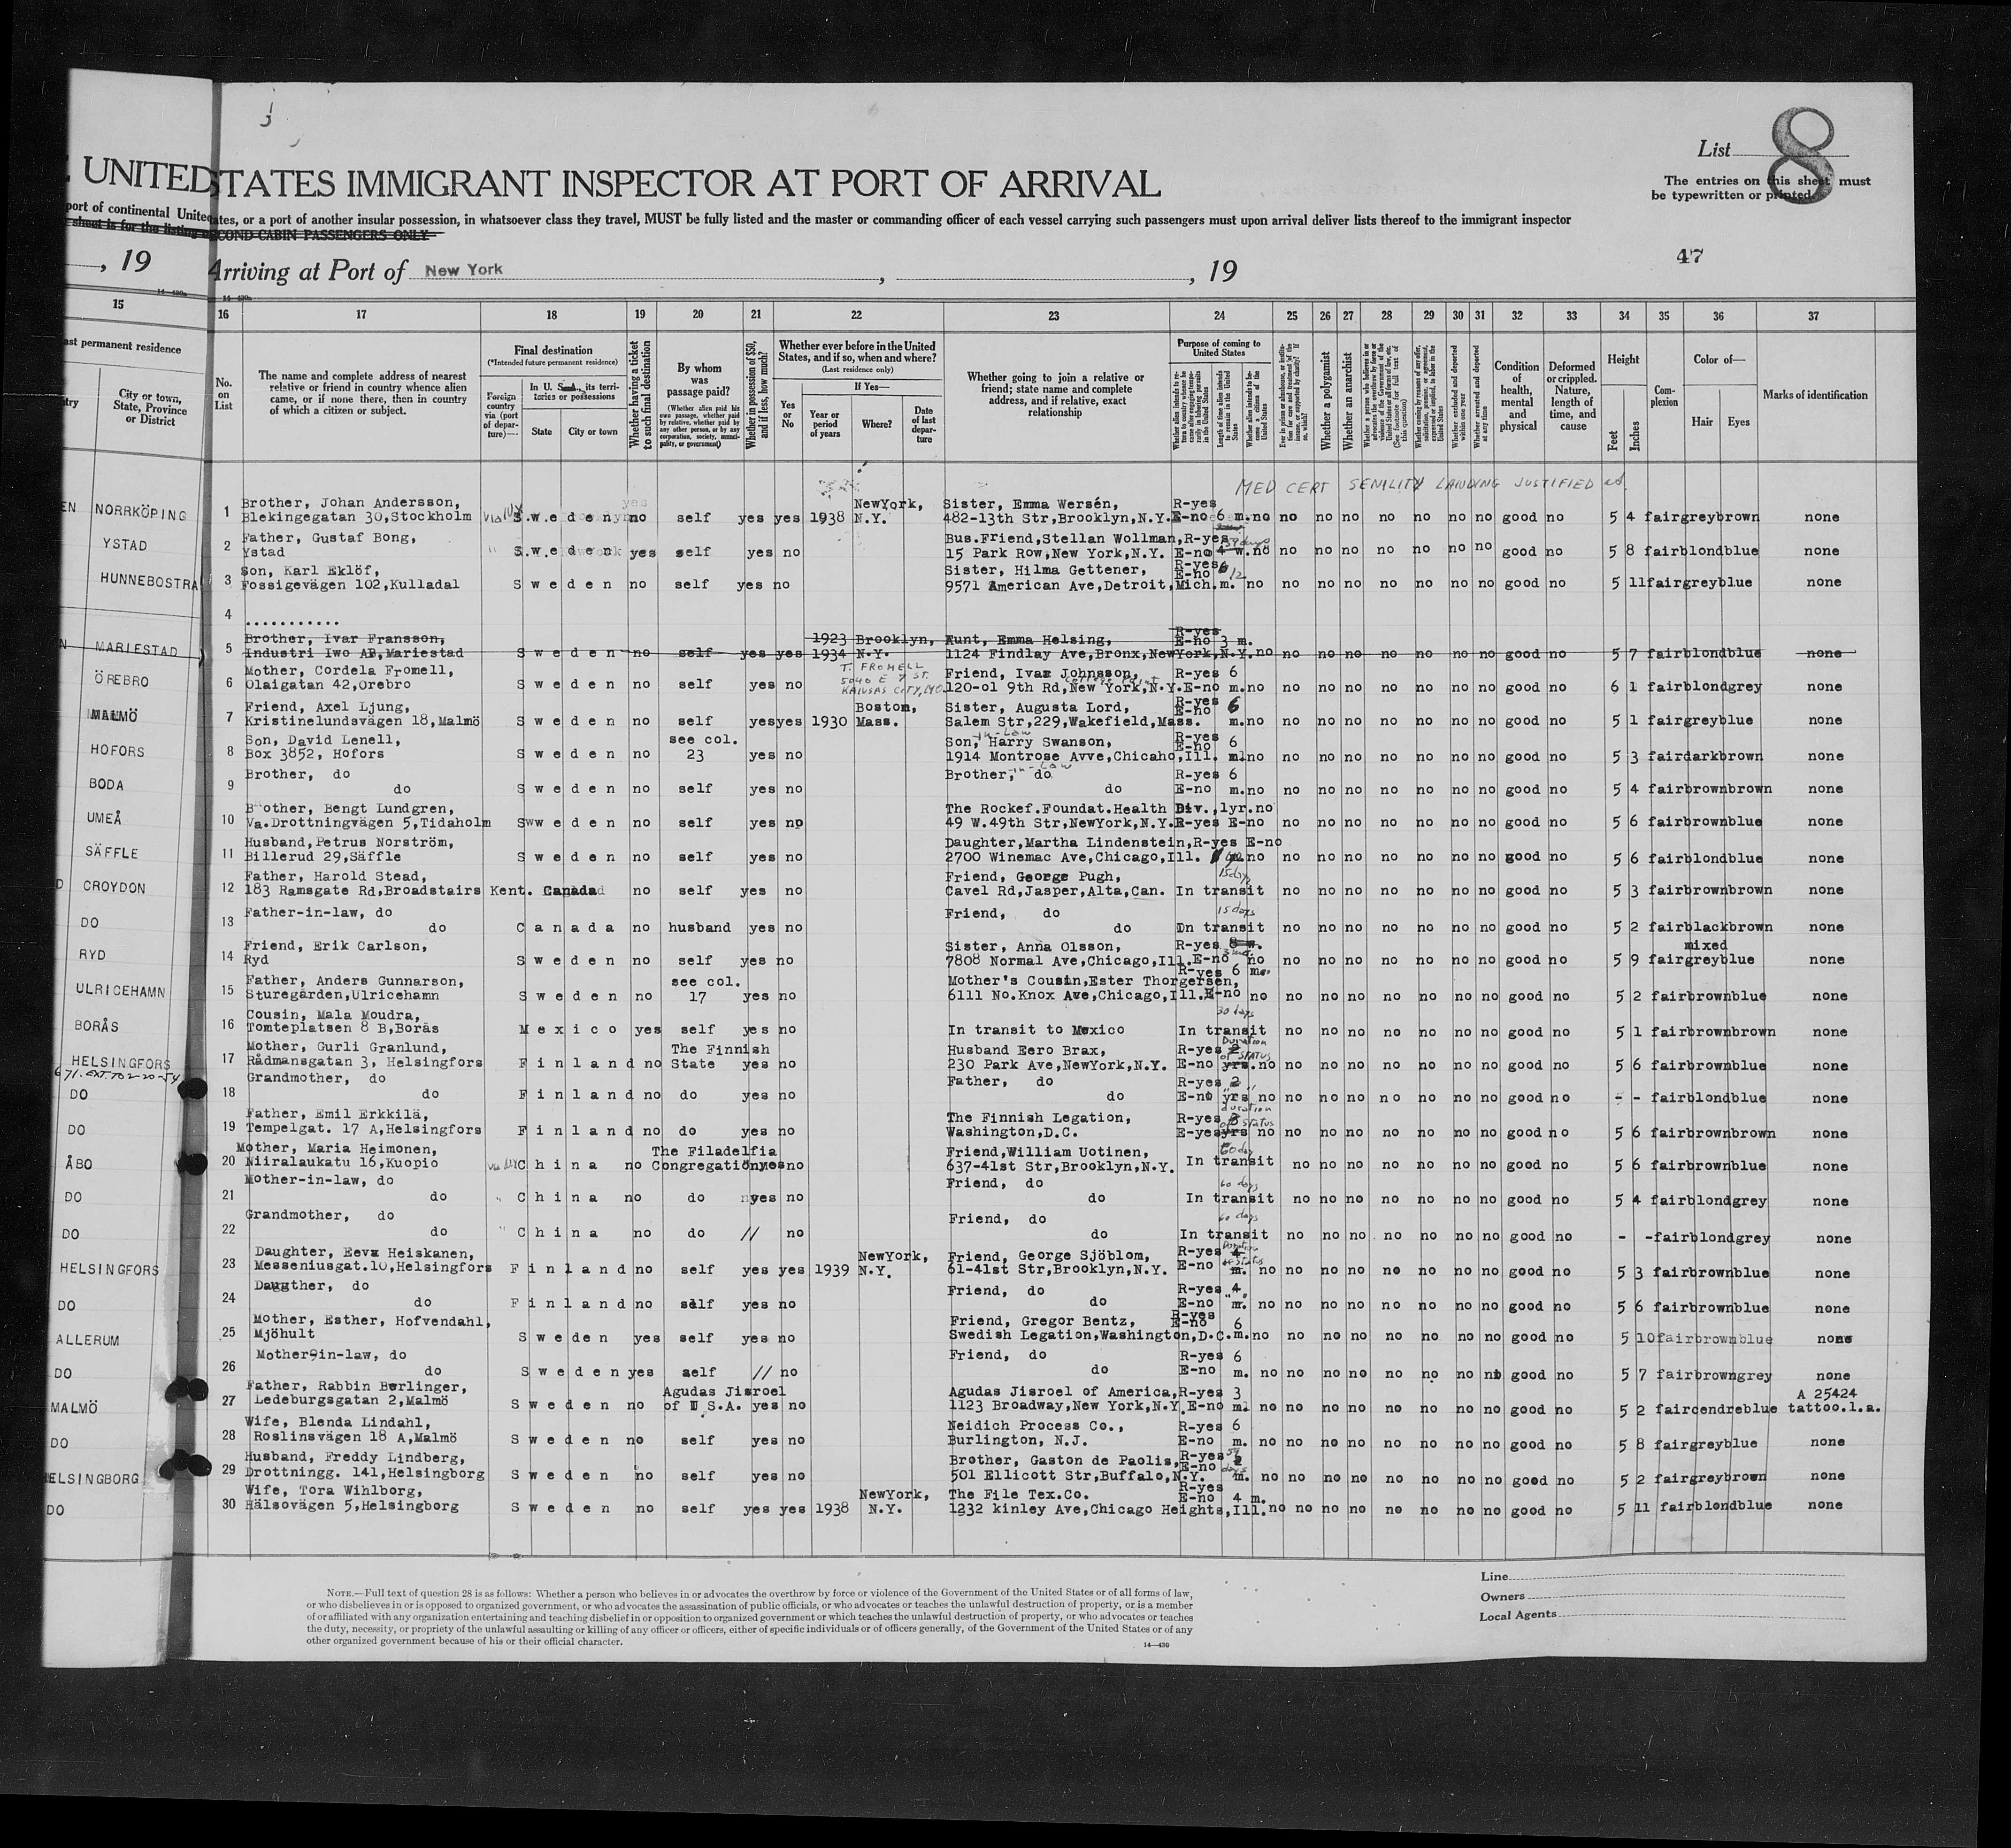 List 8
The entries on this sheet must
be typewritten or printed.
UNITED STATES IMMIGRANT INSPECTOR AT PORT OF ARRIVAL
port of continental United States, or a port of another insular possession, in whatsoever class they travel, MUST be fully listed and the master or commanding officer of each vessel carrying such passengers must upon arrival deliver lists thereof to the immigrant inspector
sheet is for the listing SECOND CABIN PASSENGERS ONLY
, 19 Arriving at Port of New York , , 19
47
15 16 17 18 19 20 21 22 23 24 25 26 27 28 29 30 31 32 33 34 35 36 37
last permanent residence
City or town, State, Province or District
No. on List
The name and complete address of nearest relative or friend in country whence alien came, or if none there, then in country of which a citizen or subject.
Final destination
(*Intended future permanent residence)
Foreign country via (port of departure)—
In U. S. A., its territories or possessions
State
City or town
Whether having a ticket to such final destination
By whom was passage paid?
(Whether alien paid his own passage, whether paid by relative, whether paid by any other person, or by any corporation, society, municipality, or government)
Whether in possession of $50, and if less, how much?
Whether ever before in the United States, and if so, when and where?
(Last residence only)
Yes or No
If Yes—
Year or period of years
Where?
Date of last departure
Whether going to join a relative or friend; state name and complete address, and if relative, exact relationship
Purpose of coming to United States
Whether a polygamist
Whether an anarchist
Condition of health, mental and physical
Deformed or crippled. Nature, length of time, and cause
Height
Feet
Inches
Complexion
Color of—
Hair
Eyes
Marks of identification
MED CERT SENILITY LANDING JUSTIFIED
NORRKÖPING 1 Brother, Johan Andersson, NewYork, Sister, Emma Wersén, R-yes
Blekingegatan 30,Stockholm Sweden no self yes yes 1938 N.Y. 482-13th Str,Brooklyn,N.Y. E-no 6 m. no no no no no no no no good no 5 4 fair grey brown none
YSTAD 2 Father, Gustaf Bong, Bus.Friend,Stellan Wollman, R-yes
Ystad Sweden yes self yes no 15 Park Row,New York,N.Y. E-no 4 w. no no no no no no no no good no 5 8 fair blond blue none
HUNNEBOSTRA 3 Son, Karl Eklöf, Sister, Hilma Gettener, R-yes 6
Fossigevägen 102,Kulladal Sweden no self yes no 9571 American Ave,Detroit,Mich. E-no m. no no no no no no no no good no 5 11 fair grey blue none
4 ...........
MARIESTAD 5 Brother, Ivar Fransson, 1923 Brooklyn, Aunt, Emma Helsing, R-yes
Industri Iwo AB,Mariestad Sweden no self yes yes 1934 N.Y. 1124 Findlay Ave,Bronx,NewYork,N.Y. E-no 3 m. no no no no no no no no good no 5 7 fair blond blue none
T. FROMELL
5040 E 7 ST.
KANSAS CITY, MO.
ÖREBRO 6 Mother, Cordela Fromell, Friend, Ivar Johnsson, R-yes 6
Olaigatan 42,Örebro Sweden no self yes no 120-01 9th Rd,New York,N.Y. E-no m. no no no no no no no no good no 6 1 fair blond grey none
MALMÖ 7 Friend, Axel Ljung, Boston, Sister, Augusta Lord, R-yes 6
Kristinelundsvägen 18,Malmö Sweden no self yes yes 1930 Mass. Salem Str,229,Wakefield,Mass. E-no m. no no no no no no no no good no 5 1 fair grey blue none
HOFORS 8 Son, David Lenell, see col. Son, in-law Harry Swanson, R-yes 6
Box 3852, Hofors Sweden no 23 yes no 1914 Montrose Avve,Chicaho,Ill. E-no m. no no no no no no no no good no 5 3 fair dark brown none
BODA 9 Brother, do Brother, in-law do R-yes 6
do Sweden no self yes no do E-no m. no no no no no no no no good no 5 4 fair brown brown none
UMEÅ 10 Brother, Bengt Lundgren, The Rockef.Foundat.Health Div., 1yr. no
Va.Drottningvägen 5,Tidaholm Sweden no self yes no 49 W.49th Str,NewYork,N.Y. R-yes E-no no no no no no no no good no 5 6 fair brown blue none
SÄFFLE 11 Husband,Petrus Norström, Daughter,Martha Lindenstein, R-yes E-no
Billerud 29,Säffle Sweden no self yes no 2700 Winemac Ave,Chicago,Ill. no no no no no no no no good no 5 6 fair blond blue none
CROYDON 12 Father, Harold Stead, Friend, George Pugh, 15 days
183 Ramsgate Rd,Broadstairs Kent. Canada no self yes no Cavel Rd,Jasper,Alta,Can. In transit no no no no no no no good no 5 3 fair brown brown none
DO 13 Father-in-law, do Friend, do 15 days
do Canada no husband yes no do In transit no no no no no no no good no 5 2 fair black brown none
RYD 14 Friend, Erik Carlson, Sister, Anna Olsson, R-yes 8 w. mixed
Ryd Sweden no self yes no 7808 Normal Ave,Chicago,Ill. E-no no no no no no no no no good no 5 9 fair grey blue none
ULRICEHAMN 15 Father, Anders Gunnarson, see col. Mother's Cousin,Ester Thorgersen, R-yes 6 mo.
Sturegården,Ulricehamn Sweden no 17 yes no 6111 No.Knox Ave,Chicago,Ill. E-no no no no no no no no no good no 5 2 fair brown blue none
BORÅS 16 Cousin, Mala Moudra, 30 days
Tomteplatsen 8 B,Borås Mexico yes self yes no In transit to Mexico In transit no no no no no no no good no 5 1 fair brown brown none
HELSINGFORS 17 Mother, Gurli Granlund, The Finnish Husband Eero Brax, R-yes 2 Duration of status
Rådmansgatan 3, Helsingfors Finland no State yes no 230 Park Ave,NewYork,N.Y. E-no yrs. no no no no no no no no good no 5 6 fair brown blue none
DO 18 Grandmother, do Father, do R-yes 2
do Finland no do yes no do E-no yrs no no no no no no no no good no - - fair blond blue none
DO 19 Father, Emil Erkkilä, The Finnish Legation, R-yes 3 duration of status
Tempelgat. 17 A,Helsingfors Finland no do yes no Washington,D.C. E-yes yrs no no no no no no no no good no 5 6 fair brown brown none
ÅBO 20 Mother, Maria Heimonen, The Filadelfia Friend,William Uotinen, 60 day
Niiralaukatu 16,Kuopio China no Congregation yes no 637-41st Str,Brooklyn,N.Y. In transit no no no no no no no good no 5 6 fair brown blue none
DO 21 Mother-in-law, do Friend, do 60 days
do China no do yes no do In transit no no no no no no no good no 5 4 fair blond grey none
DO 22 Grandmother, do Friend, do 60 days
do China no do // no do In transit no no no no no no no good no - - fair blond grey none
HELSINGFORS 23 Daughter, Eeva Heiskanen, NewYork, Friend, George Sjöblom, R-yes 4 Duration of status
Messeniusgat.10,Helsingfors Finland no self yes yes 1939 N.Y. 61-41st Str,Brooklyn,N.Y. E-no m. no no no no no no no no good no 5 3 fair brown blue none
DO 24 Daugther, do Friend, do R-yes 4
do Finland no self yes no do E-no m. no no no no no no no no good no 5 6 fair brown blue none
ALLERUM 25 Mother, Esther, Hofvendahl, Friend, Gregor Bentz, R-yes 6
Mjöhult Sweden yes self yes no Swedish Legation,Washington,D.C. E-no m. no no no no no no no no good no 5 10 fair brown blue none
DO 26 Mother9in-law, do Friend, do R-yes 6
do Sweden yes self // no do E-no m. no no no no no no no no good no 5 7 fair brown grey none
MALMÖ 27 Father, Rabbin Berlinger, Agudas Jisroel Agudas Jisroel of America, R-yes 3 A 25424
Ledeburgsgatan 2,Malmö Sweden no of U S.A. yes no 1123 Broadway,New York,N.Y. E-no m. no no no no no no no no good no 5 2 fair cendre blue tattoo.l.a.
DO 28 Wife, Blenda Lindahl, Neidich Process Co., R-yes 6
Roslinsvägen 18 A,Malmö Sweden no self yes no Burlington, N.J. E-no m. no no no no no no no no good no 5 8 fair grey blue none
HELSINGBORG 29 Husband, Freddy Lindberg, Brother, Gaston de Paolis, R-yes
Drottningg. 141,Helsingborg Sweden no self yes no 501 Ellicott Str,Buffalo,N.Y. E-no m. no no no no no no no no good no 5 2 fair grey brown none
DO 30 Wife, Tora Wihlborg, NewYork, The File Tex.Co. R-yes
Hälsovägen 5,Helsingborg Sweden no self yes yes 1938 N.Y. 1232 kinley Ave,Chicago Heights,Ill. E-no 4 m. no no no no no no no no good no 5 11 fair blond blue none
NOTE.—Full text of question 28 is as follows: Whether a person who believes in or advocates the overthrow by force or violence of the Government of the United States or of all forms of law,
or who disbelieves in or is opposed to organized government, or who advocates the assassination of public officials, or who advocates or teaches the unlawful destruction of property, or is a member
of or affiliated with any organization entertaining and teaching disbelief in or opposition to organized government or which teaches the unlawful destruction of property, or who advocates or teaches
the duty, necessity, or propriety of the unlawful assaulting or killing of any officer or officers, either of specific individuals or of officers generally, of the Government of the United States or of any
other organized government because of his or their official character.
14—430
Line
Owners
Local Agents